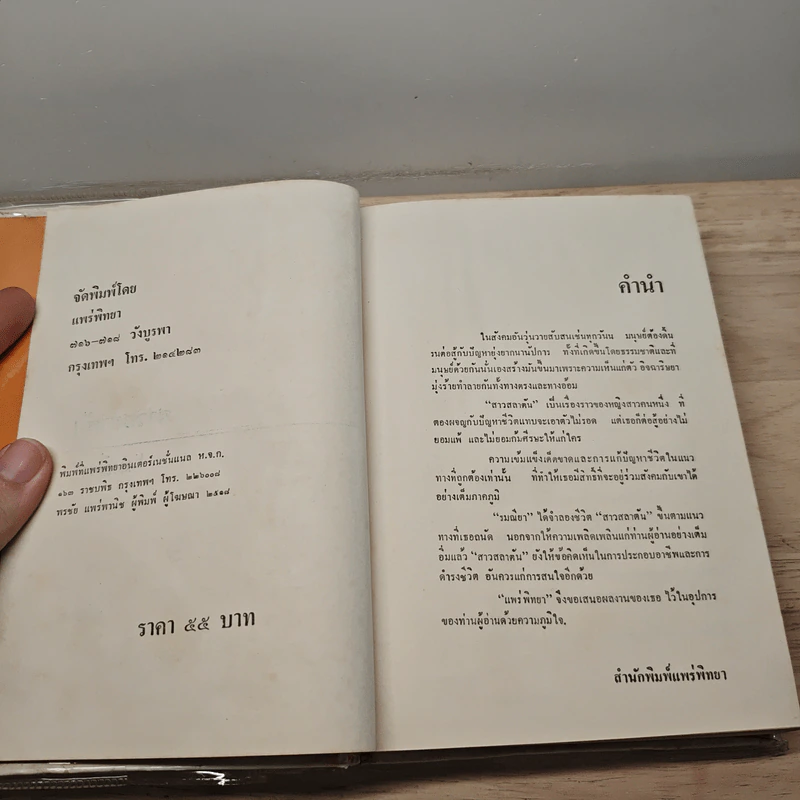 จัดพิมพ์โดย
แพร่พิทยา
๗๑๖-๗๑๘ วังบูรพา
กรุงเทพฯ โทร. ๒๑๔๒๘๓
พิมพ์ที่แพร่พิทยาอินเตอร์เนชั่นแนล ห.จ.ก.
๑๖๓ ราชบพิธ กรุงเทพฯ โทร. ๒๒๖๐๐๘
พรชัย แพร่พานิช ผู้พิมพ์ ผู้โฆษณา ๒๕๑๘
ราคา ๕๕ บาท
คำนำ
ในสังคมอันวุ่นวายสับสนเช่นทุกวันน มนุษย์ต้องดิ้น
รนต่อสู้กับปัญหายุ่งยากนานัปการ ทั้งที่เกิดขึ้นโดยธรรมชาติและที่
มนุษย์ด้วยกันนั่นเองสร้างมันขึ้นมาเพราะความเห็นแก่ตัว อิจฉาริษยา
มุ่งร้ายทำลายกันทั้งทางตรงและทางอ้อม
“สาวสลาตัน” เป็นเรื่องราวของหญิงสาวคนหนึ่ง ที่
ต้องผจญกับปัญหาชีวิตแทบจะเอาตัวไม่รอด แต่เธอก็ต่อสู้อย่างไม่
ยอมแพ้ และไม่ยอมก้มศีรษะให้แก่ใคร
ความเข้มแข็งเด็ดขาดและการแก้ปัญหาชีวิตในแนว
ทางที่ถูกต้องเท่านั้น ที่ทำให้เธอมีสิทธิ์ที่จะอยู่ร่วมสังคมกับเขาได้
อย่างเต็มภาคภูมิ
“รมณียา” ได้จำลองชีวิต “สาวสลาตัน” ขึ้นตามแนว
ทางที่เธอถนัด นอกจากให้ความเพลิดเพลินแก่ท่านผู้อ่านอย่างเต็ม
อิ่มแล้ว “สาวสลาตัน” ยังให้ข้อคิดเห็นในการประกอบอาชีพและการ
ดำรงชีวิต อันควรแก่การสนใจอีกด้วย
“แพร่พิทยา” จึงขอเสนอผลงานของเธอ ไว้ในอุปการ
ของท่านผู้อ่านด้วยความภูมิใจ.
สำนักพิมพ์แพร่พิทยา